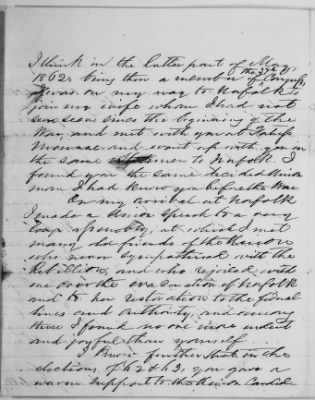 I think in the latter part of May,
1862, being then a member of the 37th Congress,
I was on my way to Norfolk to
join my wife whom I had not
seen since the beginning of the
War, and met with you at
and went up with you in
the same to Norfolk. I
found you the same decided Union
man I had known you before the War.
On my arrival at Norfolk
I made a Union Speech to a very
large assembly, at which I met
many old friends of the Union
who never sympathised with the
Rebellion, and who rejoiced with
me over the evacuation of Norfolk
and to her restoration to the federal
lines and authority, and among
them I found no one more ardent
and joyful than yourself.
I know further that in the
elections of 62 & 63, you gave a
warm support to the Union Candid-